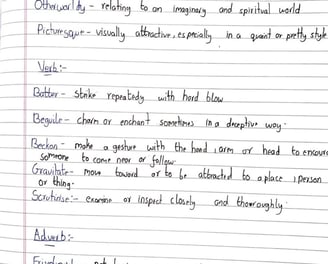 Otherworldly - relating to an imaginary and spiritual world
Picturesque - visually attractive, especially in a quaint or pretty style
Verb:-
Batter - strike repeatedly with hard blow
Beguile - charm or enchant sometimes in a deceptive way.
Beckon - make a gesture with the hand, arm or head to encour
someone to come near or follow.
Gravitate - move toward or to be attracted to a place, person
or thing.
Scrutinise:- examine or inspect closely and thoroughly.
Adverb:-